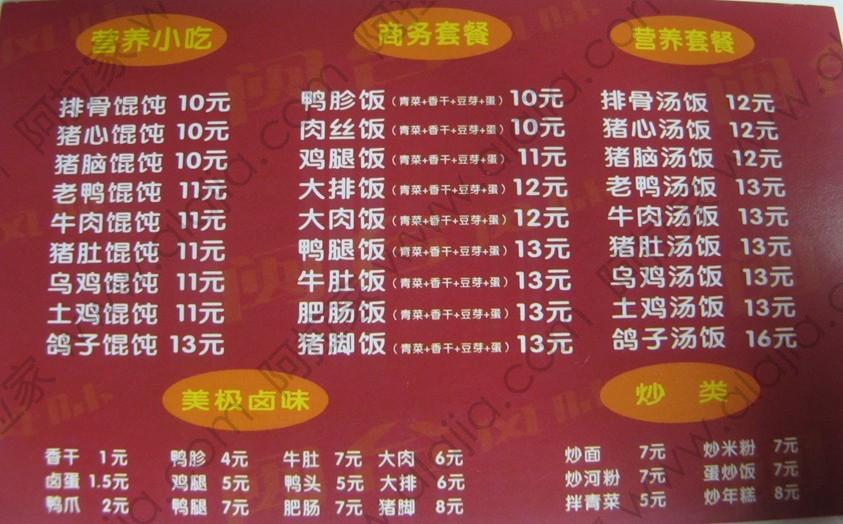 营养小吃
排骨馄饨 10元
猪心馄饨 10元
猪脑馄饨 10元
老鸭馄饨 11元
牛肉馄饨 11元
猪肚馄饨 11元
乌鸡馄饨 11元
土鸡馄饨 11元
鸽子馄饨 13元
商务套餐
鸭胗饭(青菜+香干+豆芽+蛋) 10元
肉丝饭(青菜+香干+豆芽+蛋) 10元
鸡腿饭(青菜+香干+豆芽+蛋) 11元
大排饭(青菜+香干+豆芽+蛋) 12元
大肉饭(青菜+香干+豆芽+蛋) 12元
鸭腿饭(青菜+香干+豆芽+蛋) 13元
牛肚饭(青菜+香干+豆芽+蛋) 13元
肥肠饭(青菜+香干+豆芽+蛋) 13元
猪脚饭(青菜+香干+豆芽+蛋) 13元
营养套餐
排骨汤饭 12元
猪心汤饭 12元
猪脑汤饭 12元
老鸭汤饭 13元
牛肉汤饭 13元
猪肚汤饭 13元
乌鸡汤饭 13元
土鸡汤饭 13元
鸽子汤饭 16元
美极卤味
香干 1元 鸭胗 4元 牛肚 7元 大肉 6元
卤蛋 1.5元 鸡腿 5元 鸭头 5元 大排 6元
鸭爪 2元 鸭腿 7元 肥肠 7元 猪脚 8元
炒类
炒面 7元 炒米粉 7元
炒河粉 7元 蛋炒饭 7元
拌青菜 5元 炒年糕 8元
阿拉家 www.alajia.com